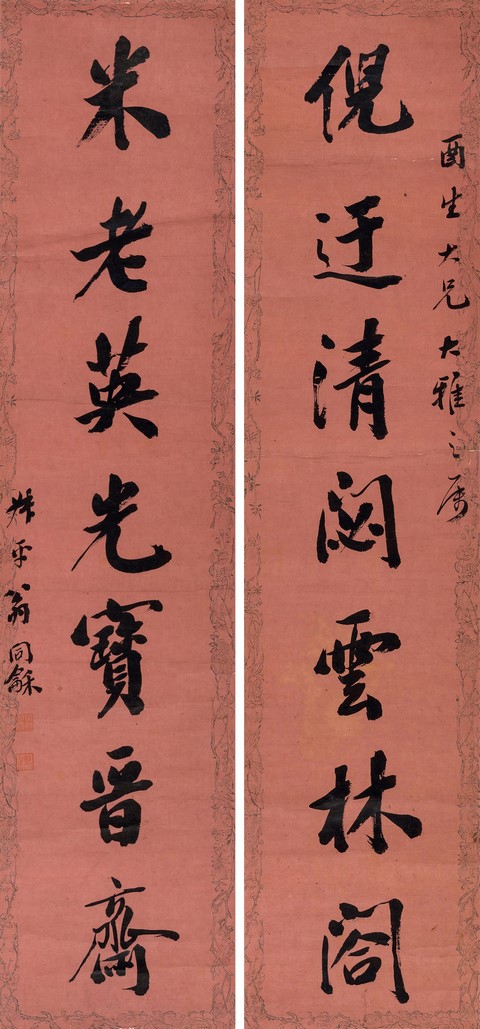 酉生大兄大雅之属
倪迂清閟雲林閣
米老英光寶晉齋
叔平翁同龢